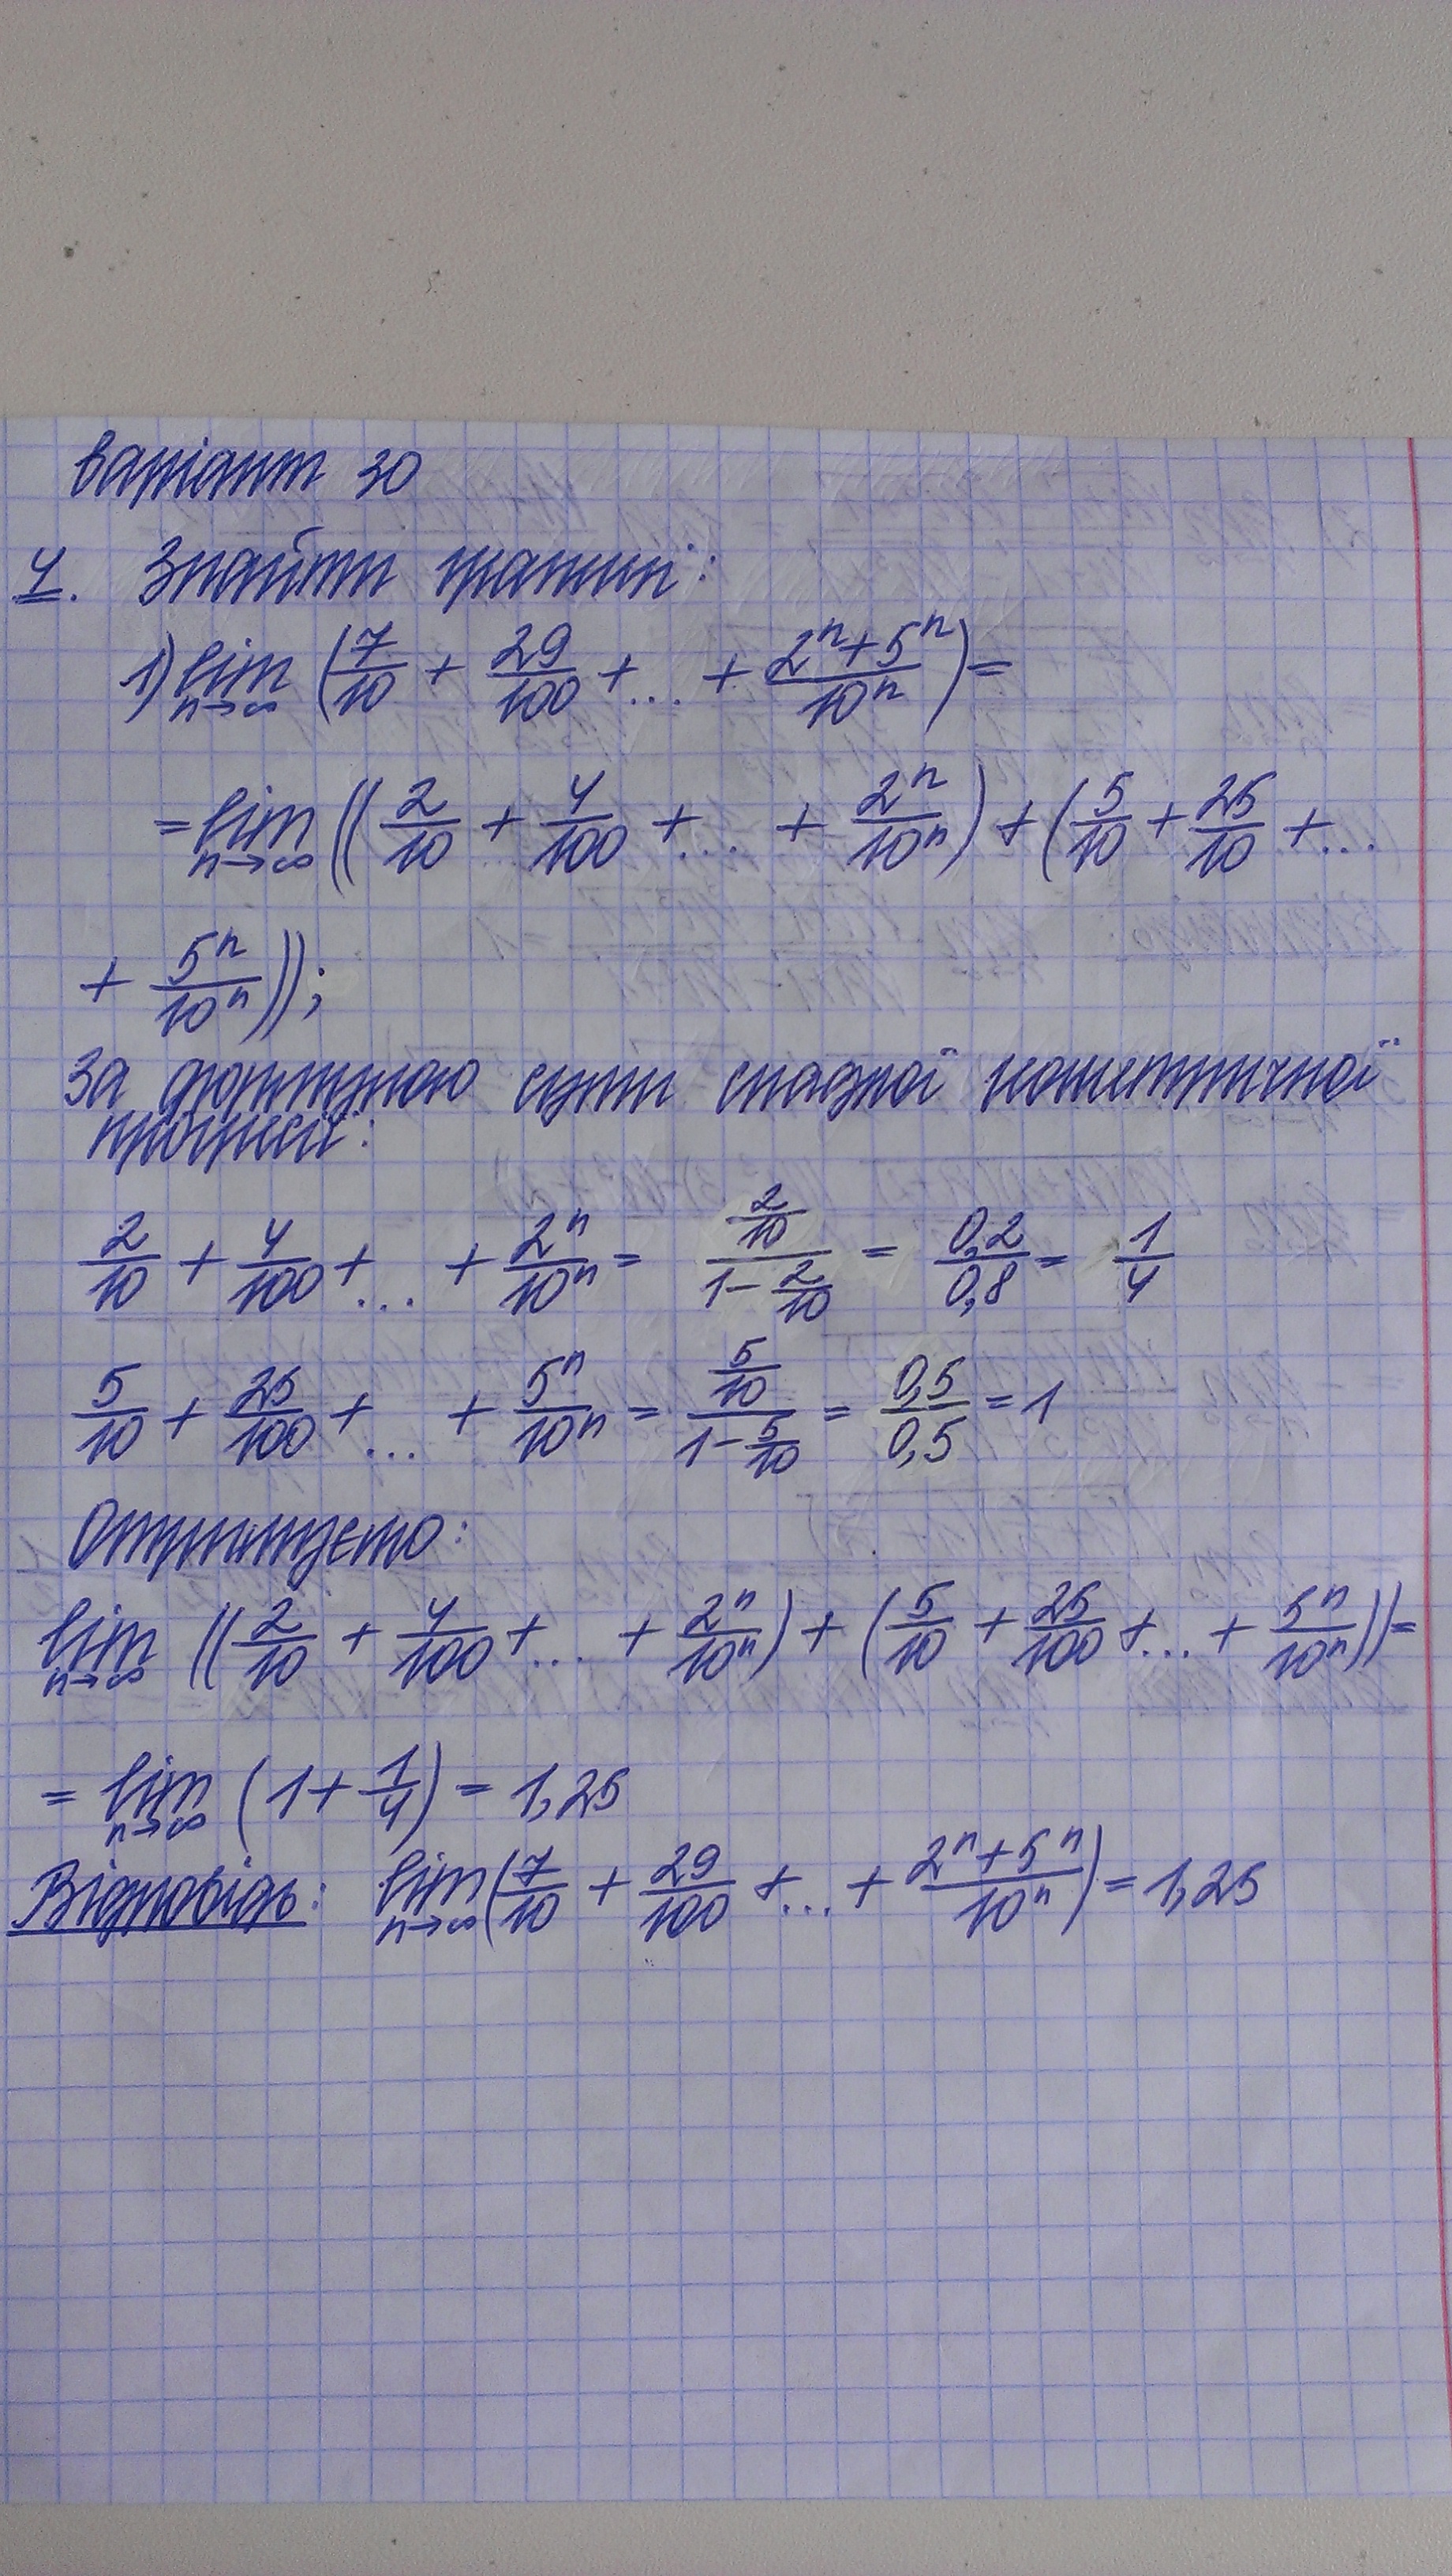 Варіант 30
4. Знайти границі:
1) lim n→∞ (7/10 + 29/100 + ... + (2^n + 5^n)/10^n) =
= lim n→∞ ((2/10 + 4/100 + ... + 2^n/10^n) + (5/10 + 25/10 + ...
+ 5^n/10^n));
За формулою суми спадної геометричної
прогресії:
2/10 + 4/100 + ... + 2^n/10^n = (2/10)/(1 - 2/10) = 0,2/0,8 = 1/4
5/10 + 25/100 + ... + 5^n/10^n = (5/10)/(1 - 5/10) = 0,5/0,5 = 1
Отримуємо:
lim n→∞ ((2/10 + 4/100 + ... + 2^n/10^n) + (5/10 + 25/100 + ... + 5^n/10^n)) =
= lim n→∞ (1 + 1/4) = 1,25
Відповідь: lim n→∞ (7/10 + 29/100 + ... + (2^n + 5^n)/10^n) = 1,25